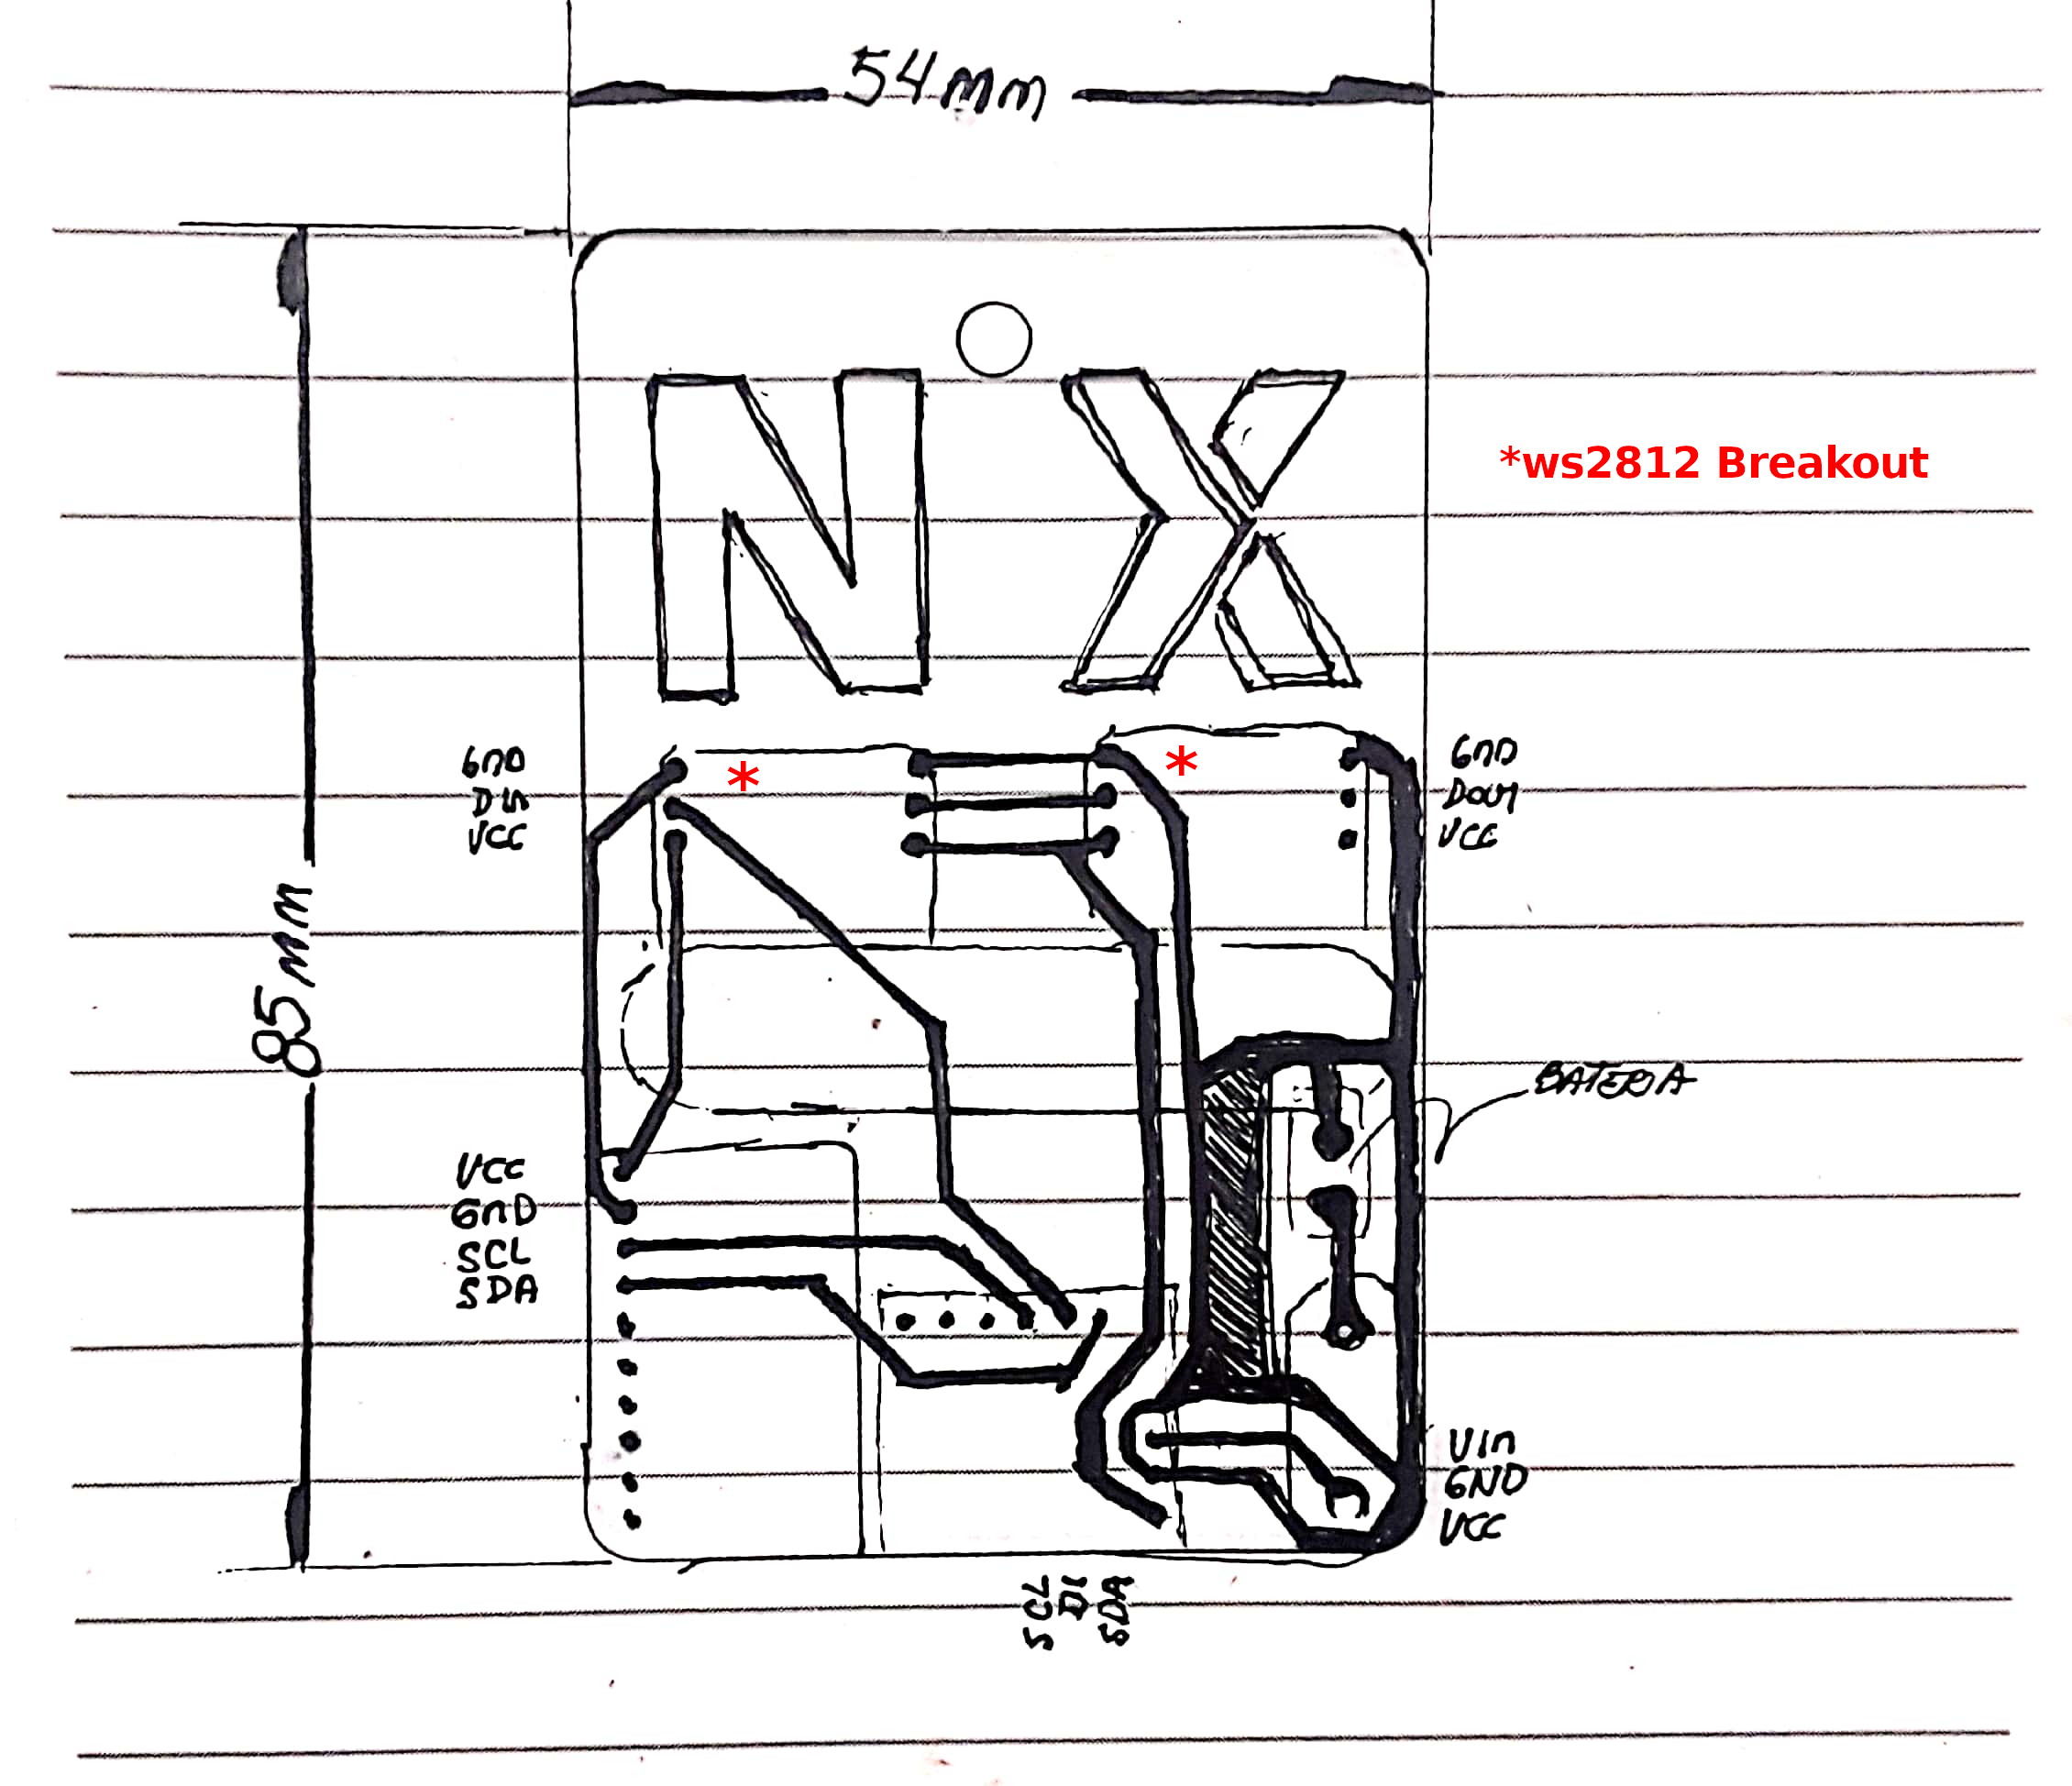 54mm
NX
*ws2812 Breakout
GND
DIN
VCC
*
*
GND
DOUT
VCC
85mm
BATERIA
VCC
GND
SCL
SDA
VIN
GND
VCC
SCL
DI
SDA